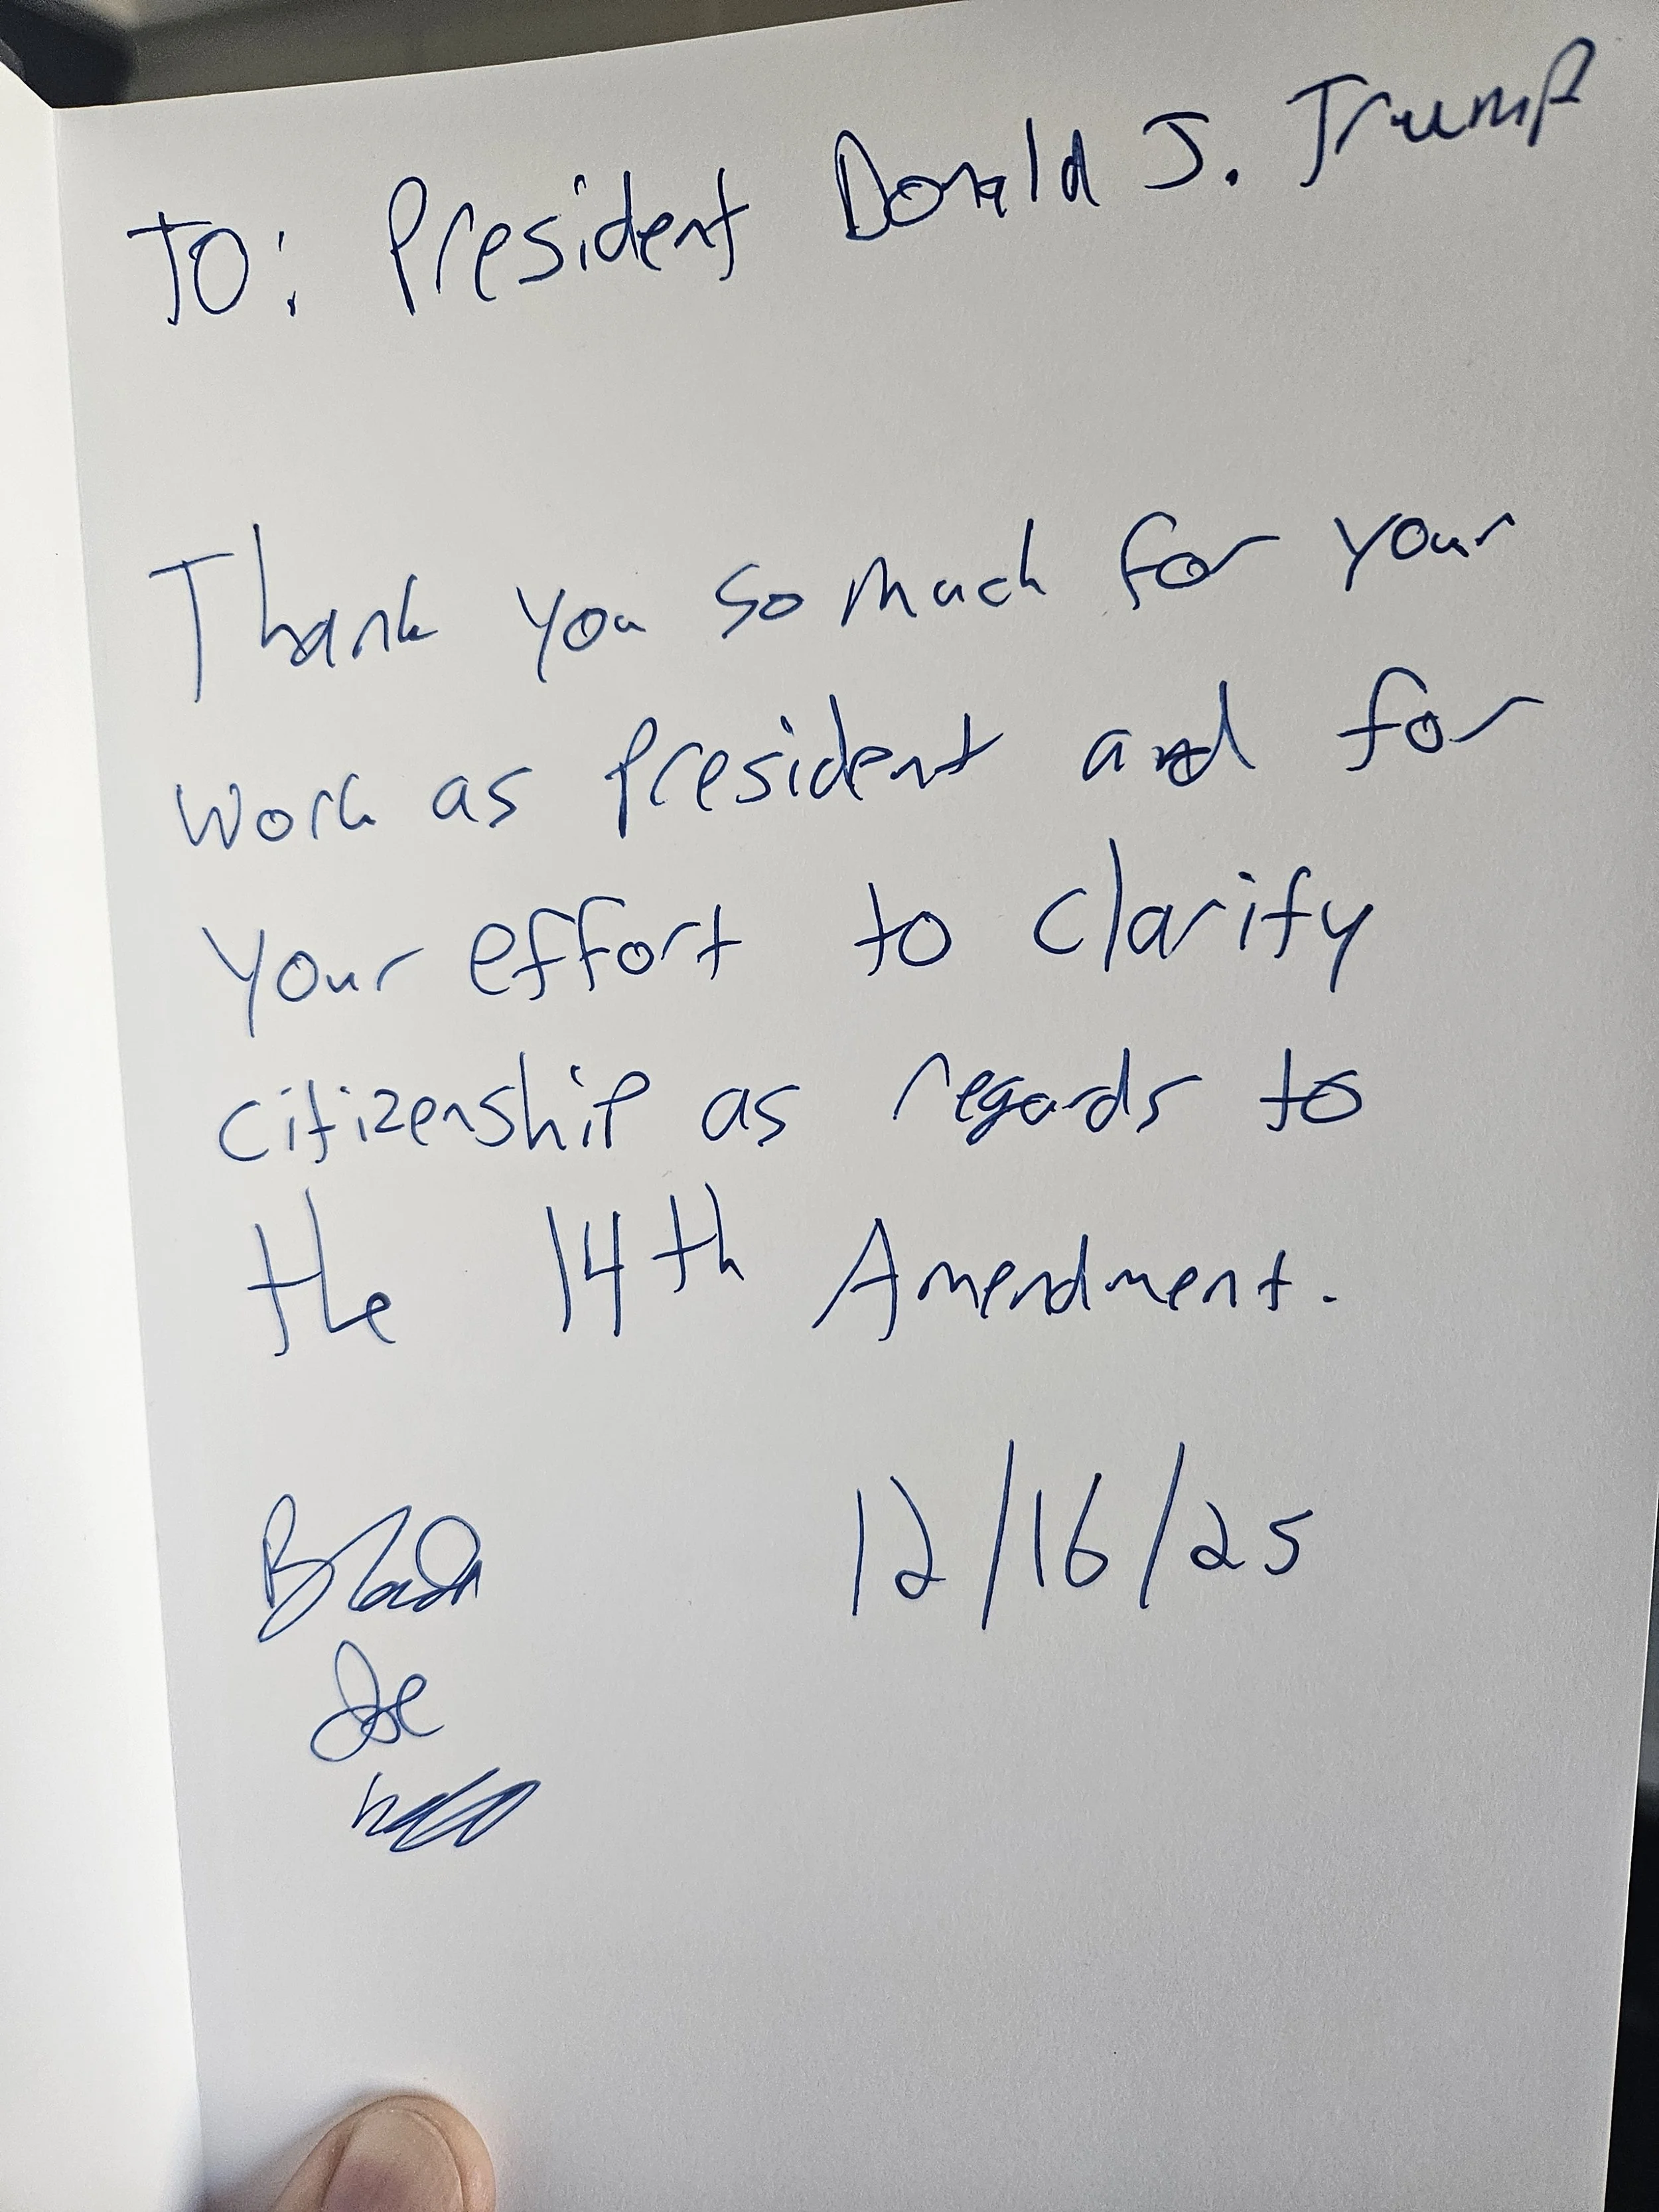 To: President Donald J. Trump
Thank you so much for your
work as president and for
your effort to clarify
citizenship as regards to
the 14th Amendment.
12/16/25